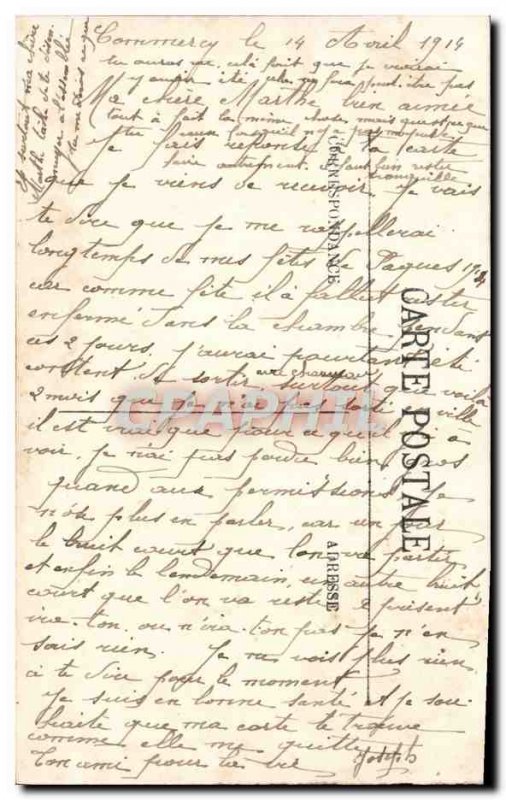 Commercy le 14 Avril 1914
tu auras
Ma chère Marthe bien aimée
tout à fait la même chose, mais quesque
tu veux
Je fais réponse à ta carte
faire autrement. faut bien rester
tranquille
que je viens de recevoir. Je vais
te dire que je me rappellerai
longtemps de mes fêtes de Paques 1914
car comme fête il à fallut rester
enfermé dans la chambre. Pendant
ces 2 jours. J'aurai pourtant été
content de sortir surtout que voilà
2 mois que je n'ai pas sorti en ville
il est vrai que pour ce qu'il y à
voir. Je n'ai pas perdu bien gros
quand aux permissions Je
n'ose plus en parler, car un jour
le bruit court que l'on va partir
et enfin le lendemain, un autre bruit
court que l'on va rester à présent
ira-t-on, ou n'ira-t-on pas je n'en
sais rien. Je ne vois plus rien
à te dire pour le moment
Je suis en bonne santé et Je sou-
haite que ma carte te trouve
comme elle me quitte
Ton ami pour la vie Joseph
Et surtout ma chère
Marthe
CORRESPONDANCE
CARTE POSTALE
ADRESSE
CPAPHIL